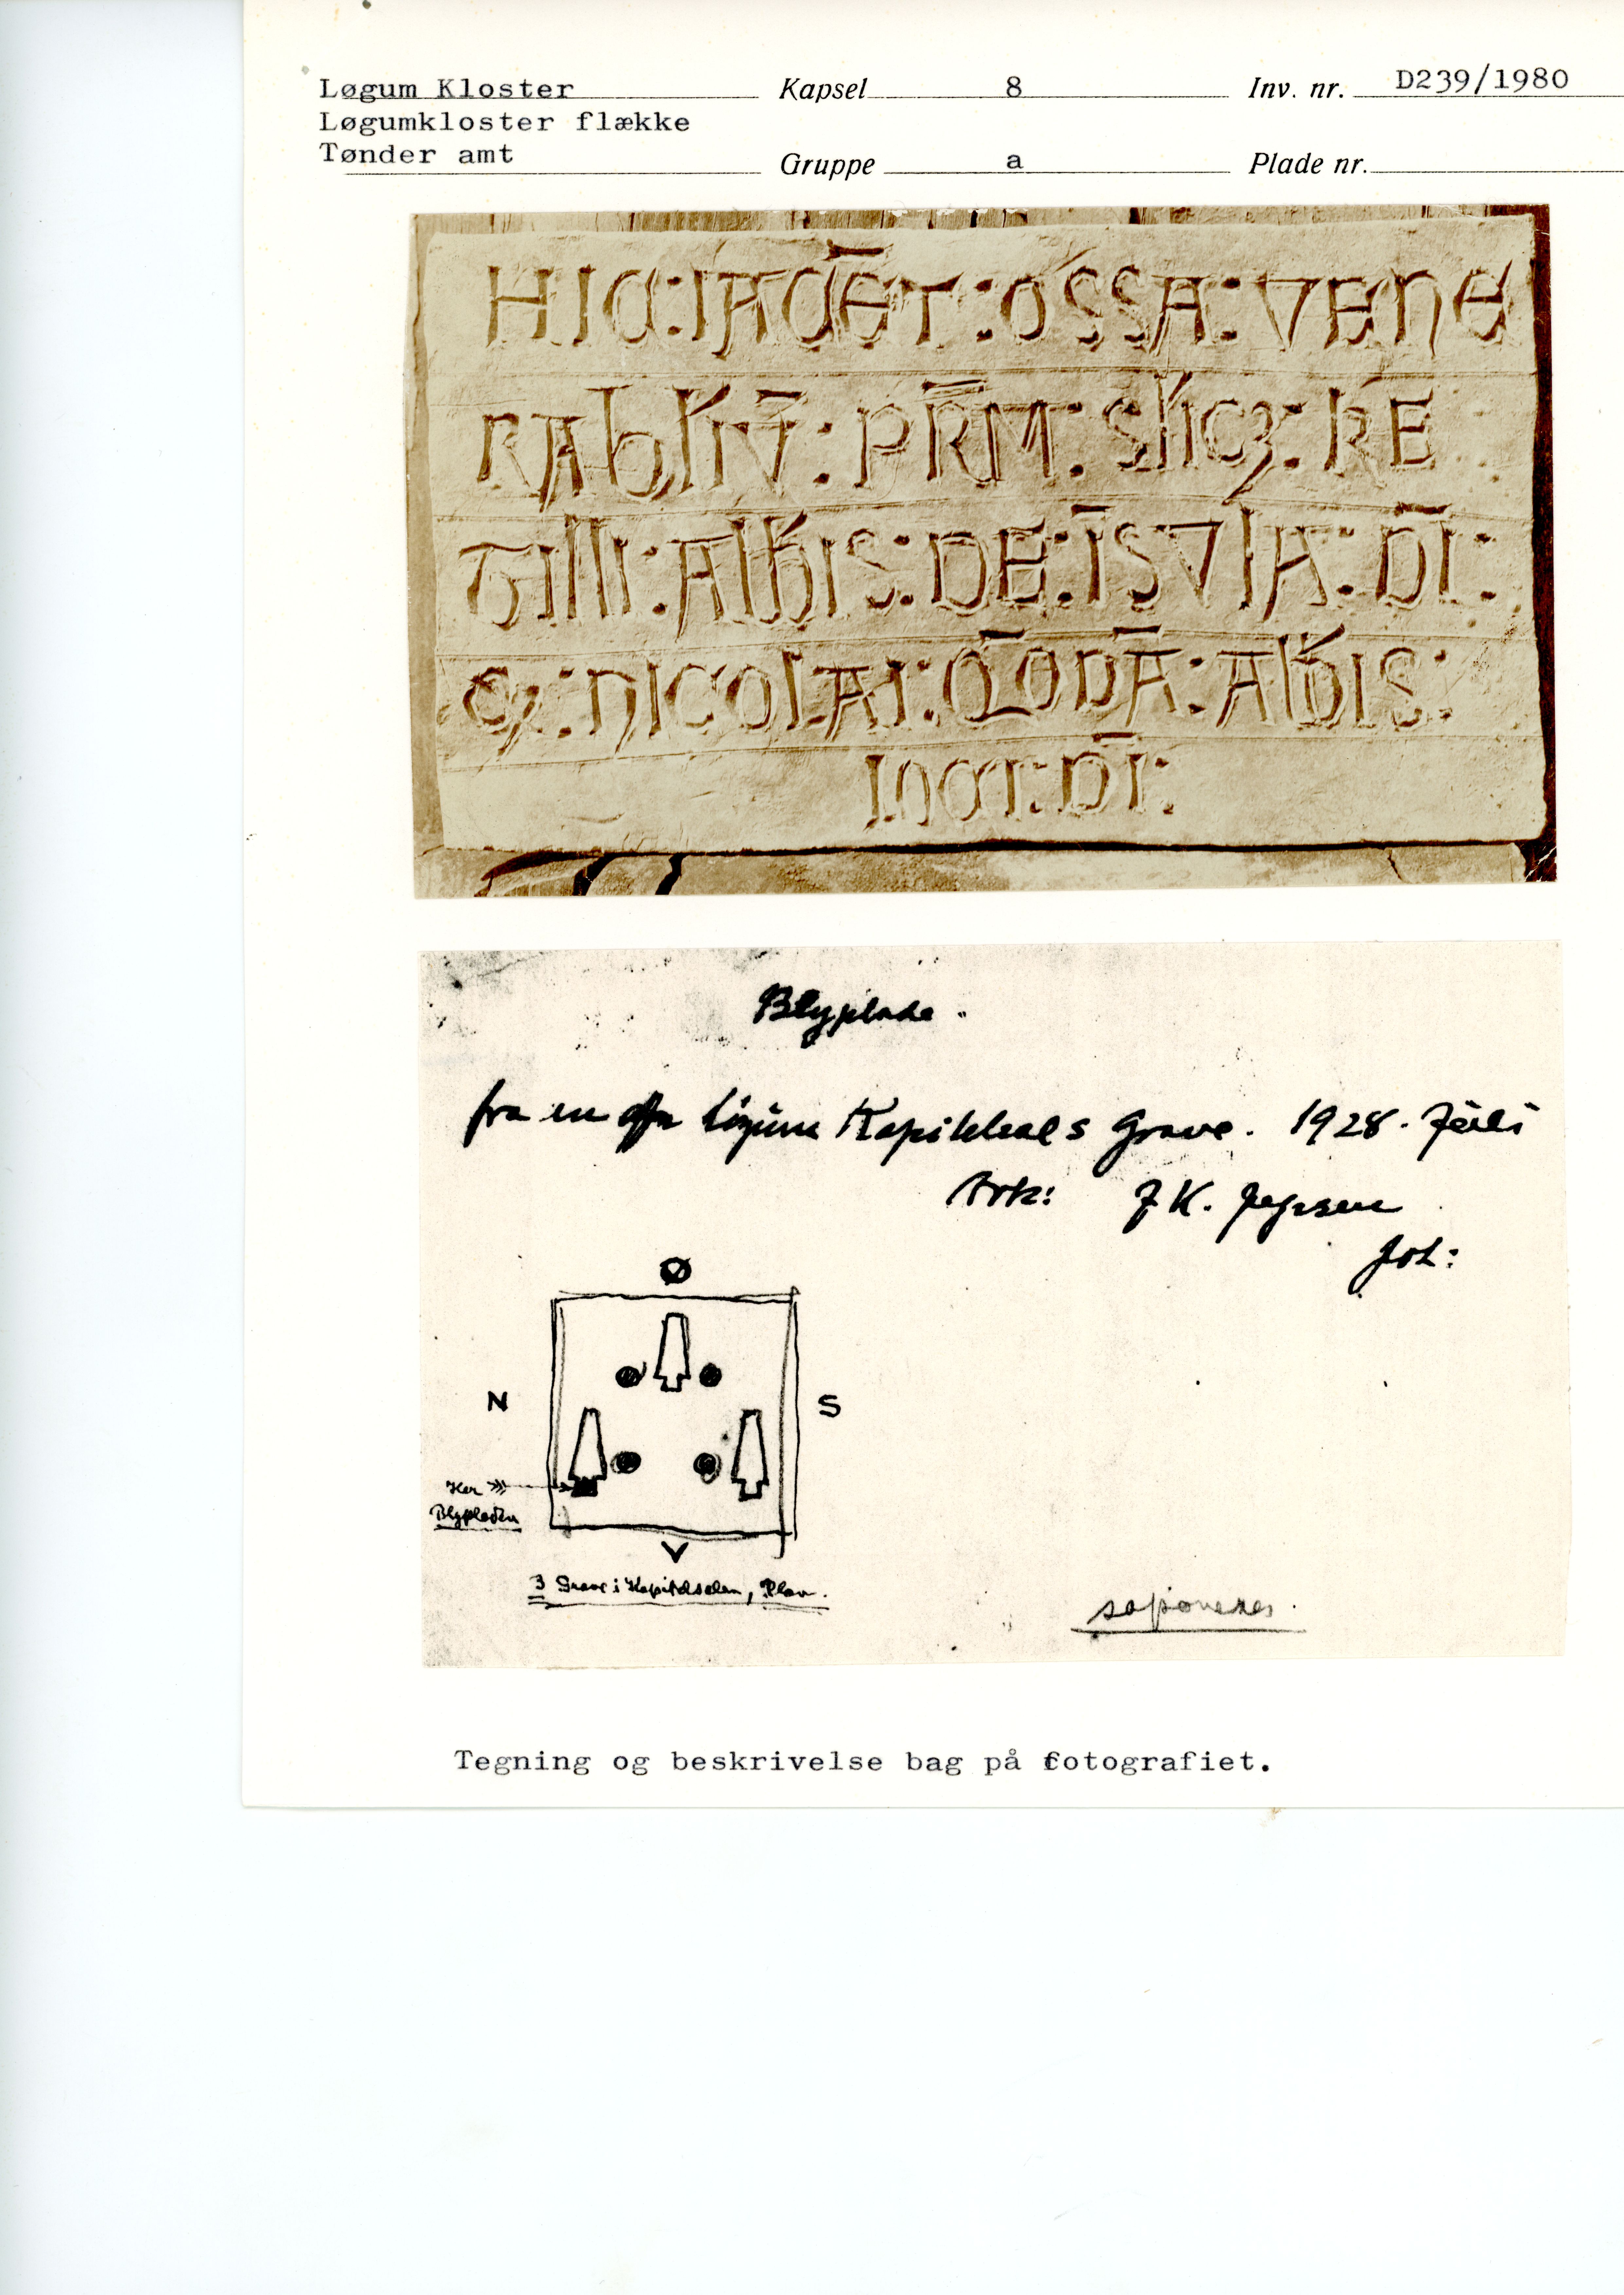 Løgum Kloster Kapsel 8 Inv. nr. D239/1980
Løgumkloster flække
Tønder amt Gruppe a Plade nr.
HIC:IACĒT:OSSA:VENE
RABIĪV̄:PR̄M:SĪICꝫ:KE
TILLI:ABBIS:DE:ĪSVLA:DĪ:
Cꝫ:NICOLAI:QͦODĀ:ABBIS:
LOCI:DĪ:
Blyplade.
fra en af Løgum Kapitelsals Grave. 1928. Juli
Ark: J K. Jepsen
fot:
Ø
N S
Her
Blypladen
V
3 Grave i Kapitelsalen, Plan.
Tegning og beskrivelse bag på fotografiet.